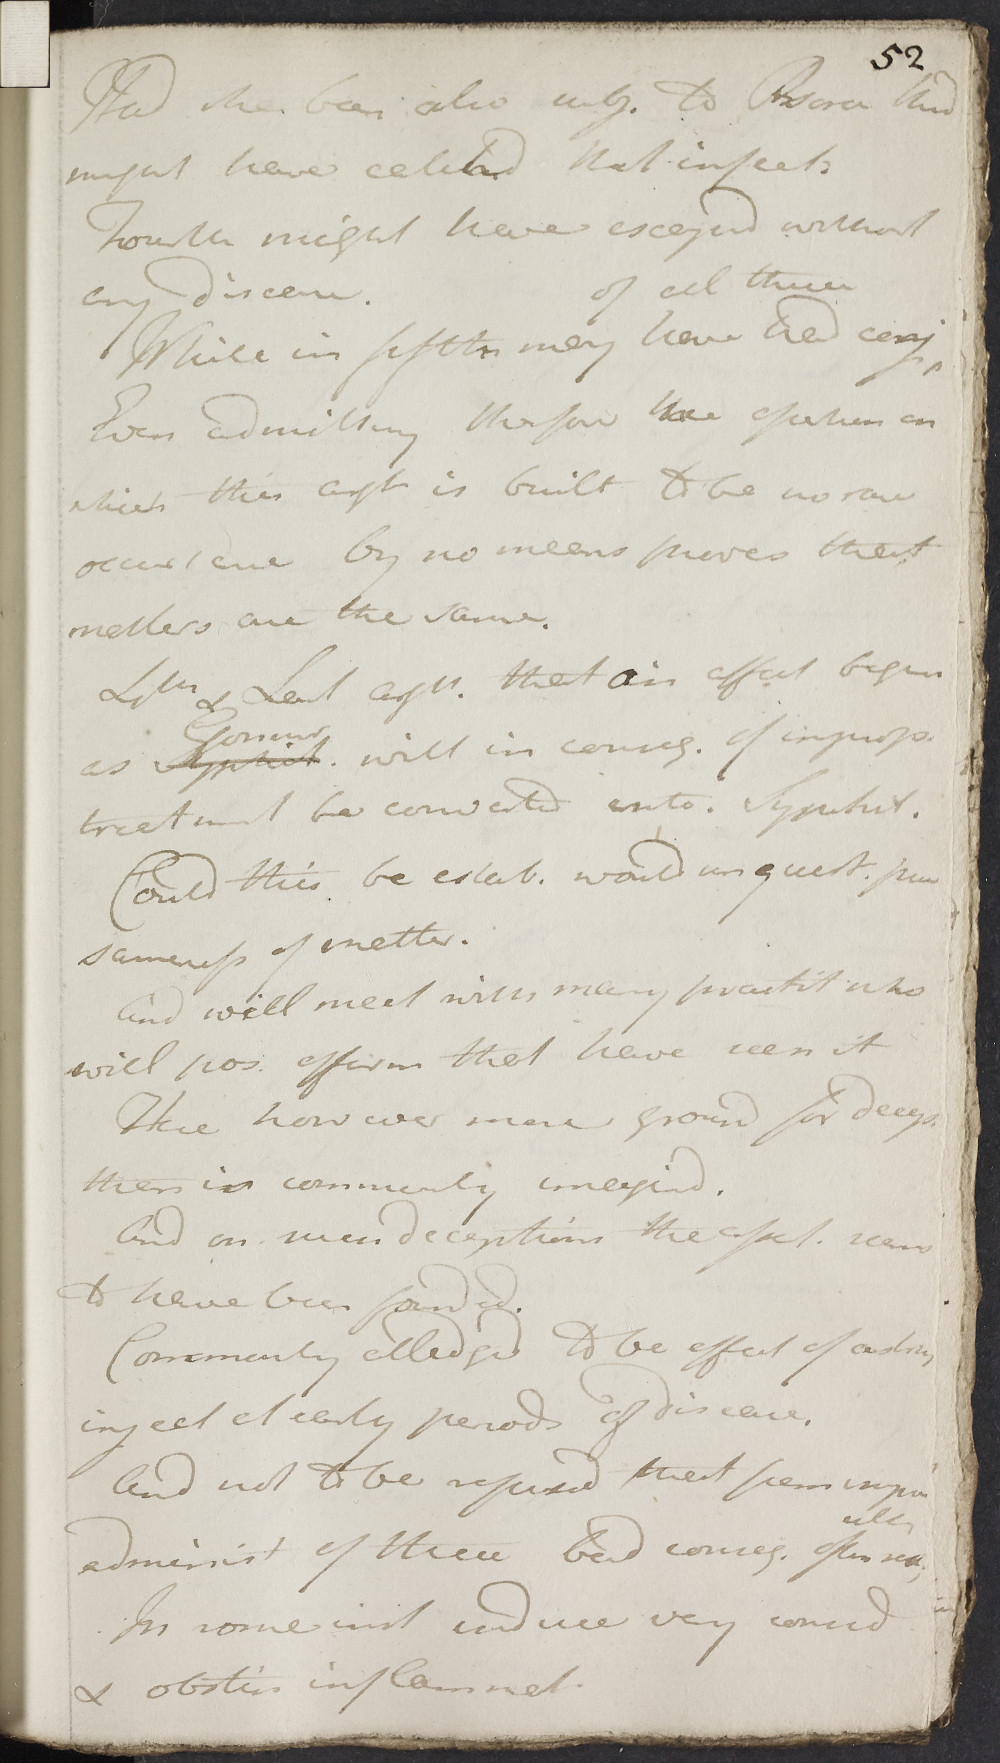 52
Had she been also subj. to Psora third
might have catched that infect.
Fourth might have escaped without
any disease.
of all three
While in fifth may have had conj.
Even admitting therfore the assertion on
which this argt is built to be no rare
occurrence by no means proves that
matters are the same.
& Last argt. that an affect begun
Gonorr
as Syphilit. will in conseq. of improp.
treatment be converted into. Syphil.
Could this be estab. would unquest. prove
sameness of matter.
And will meet with many practit who
will pos. affirm that have seen it
Here however more ground for decep.
then is commonly imagind.
And on such deceptions the assert. seems
to have been founded.
Commonly alledged to be effect of astring
inject at early periods of disease.
And not to be refused that from improp
administ of these bad conseq. often result
In some inst induce very consid
& obstin inflammat.